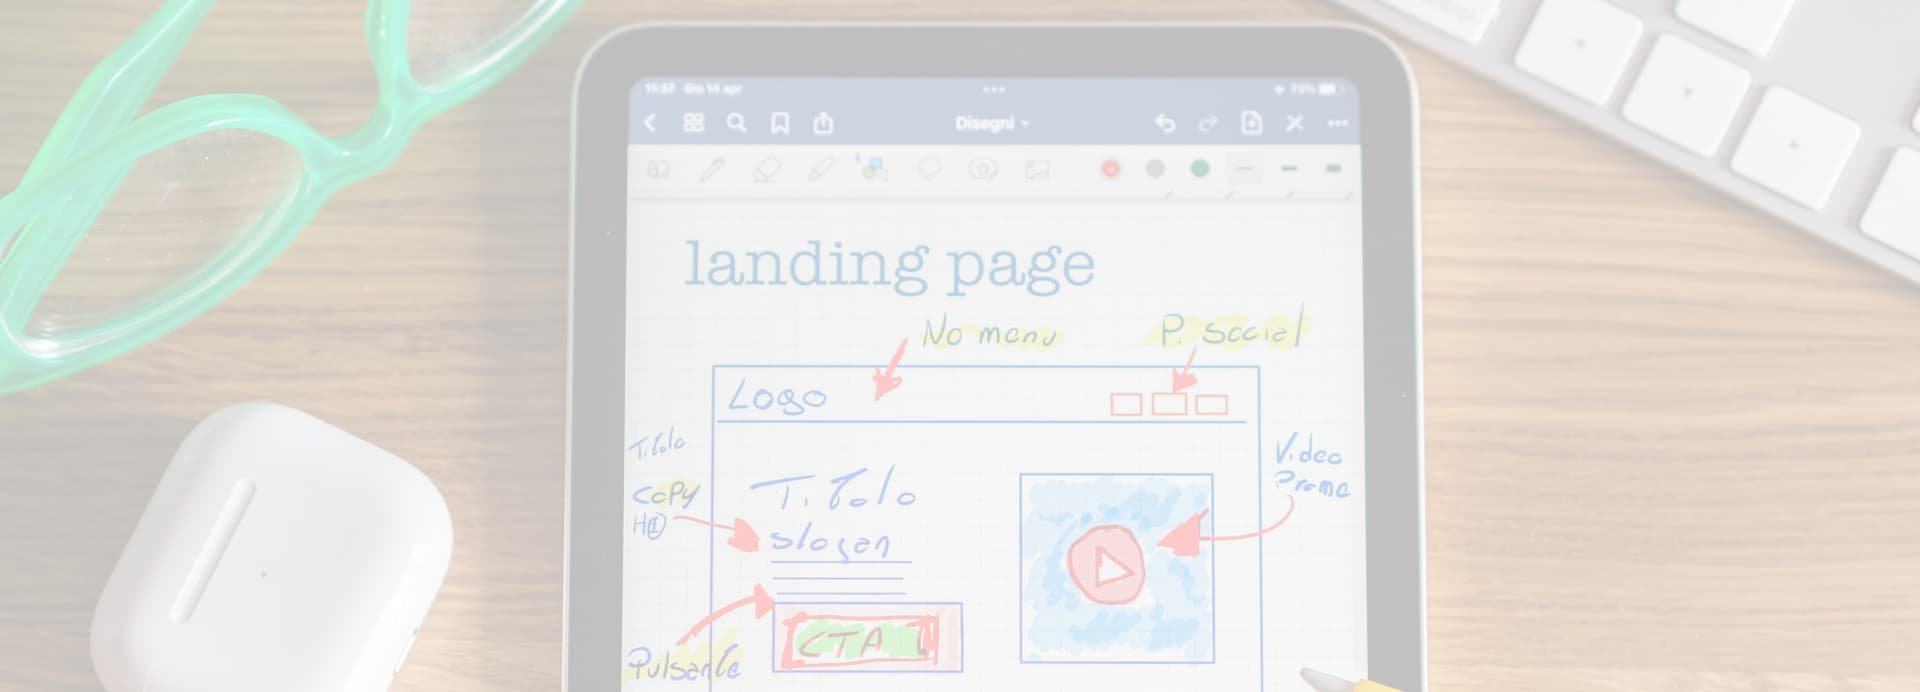 11:37 Gio 14 apr
73%
Disegni
landing page
No menu
P. social
Logo
Titolo
Copy
H1
Titolo
slogan
Video
Promo
CTA 1
Pulsante